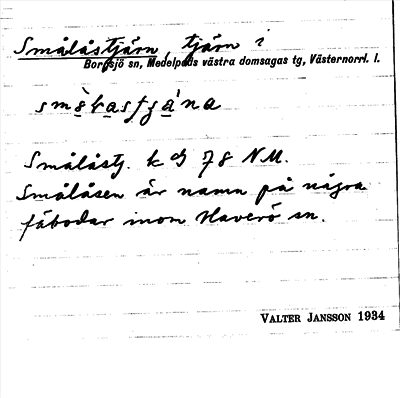 Smålåstjärn, tjärn i
Borgsjö sn, Medelpads västra domsagas tg, Västernorrl. l.
Smålåstj. k bl 78 NM.
Smålåsen är namn på några
fäbodar inom Haverö sn.
VALTER JANSSON 1934